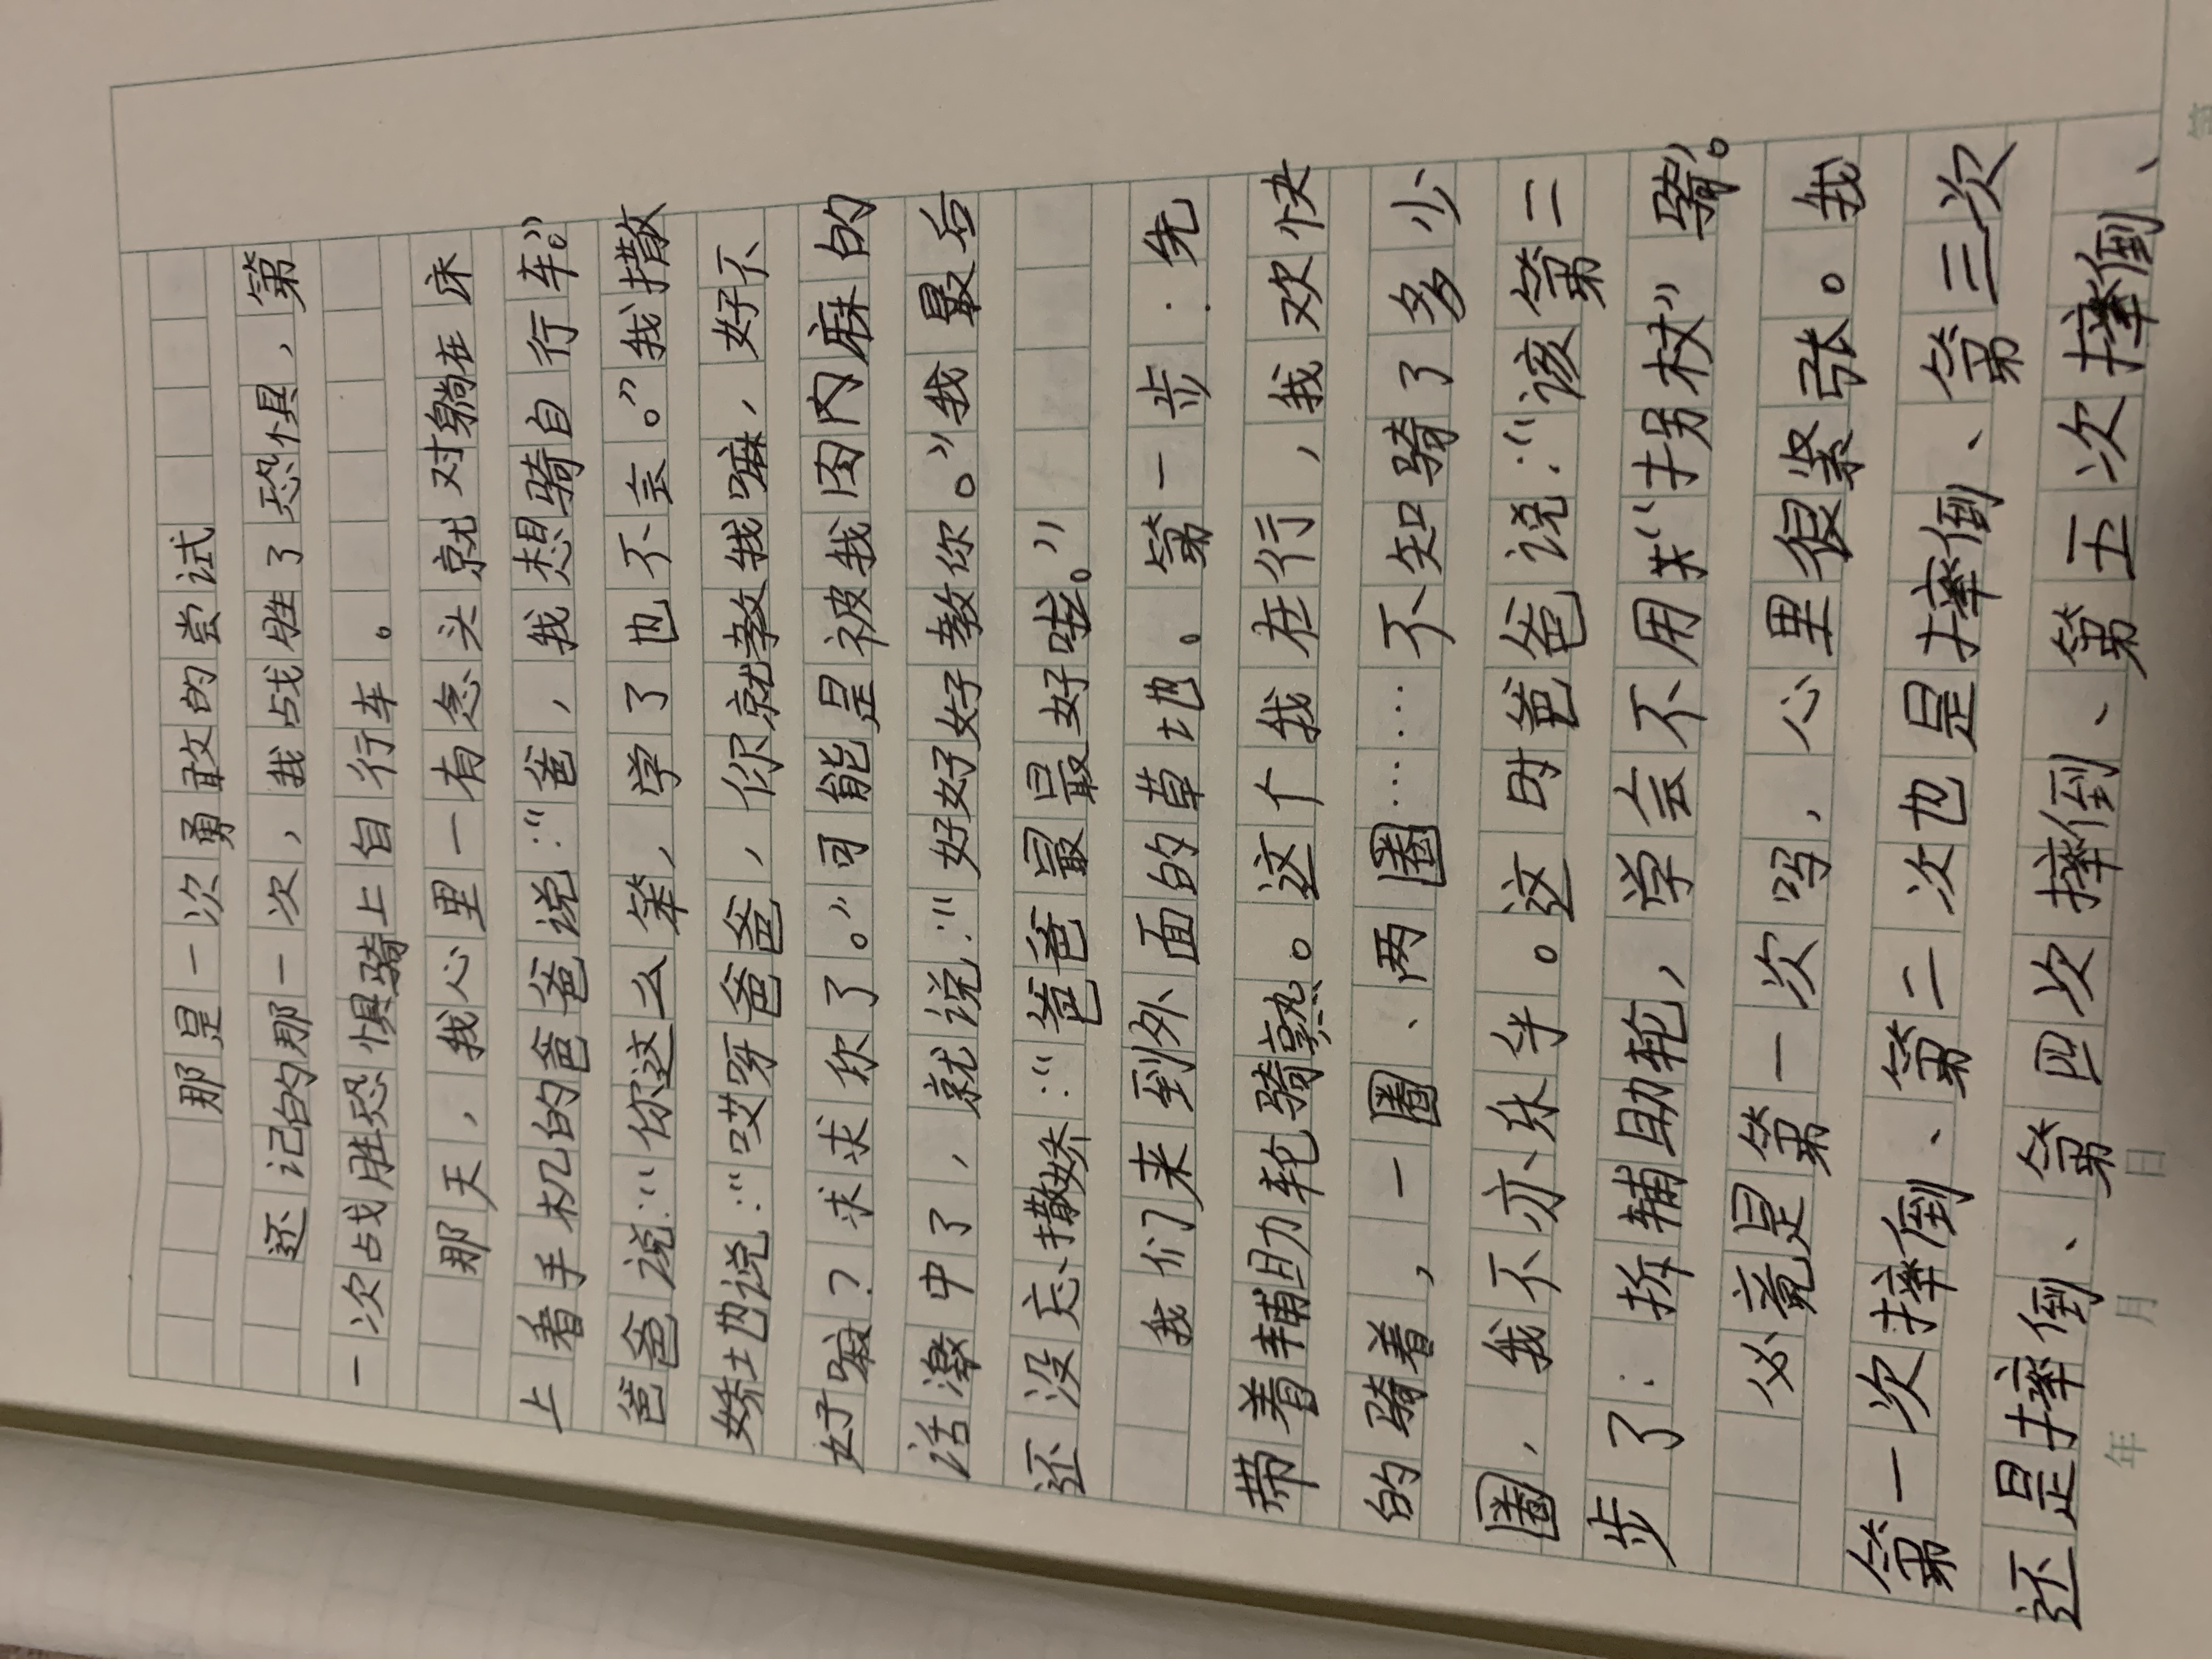 那是一次勇敢的尝试
还记的那一次，我战胜了恐惧，第
一次战胜恐惧骑上自行车。
那天，我心里一有念头就对躺在床
上看手机的爸爸说：“爸，我想骑自行车。”
爸爸说：“你这么笨，学了也不会。”我撒
娇地说：“哎呀爸爸，你就教我嘛，好不
好嘛？求求你了。”可能是被我肉肉麻的
话激中了，就说：“好好好教你。”我最后
还没忘撒娇：“爸爸最最好啦。”
我们来到外面的草地。第一步：先
带着辅助轮骑熟。这个我在行，我欢快
的骑着，一圈、两圈……不知骑了多少
圈，我不亦乐乎。这时爸爸说：“该第二
步了：拆辅助轮，学会不用“拐杖”骑。”
必竟是第一次吗，心里很紧张。我
第一次摔倒、第二次也是摔倒、第三次
还是摔倒、第四次摔倒、第五次摔倒、
年 月 日 第